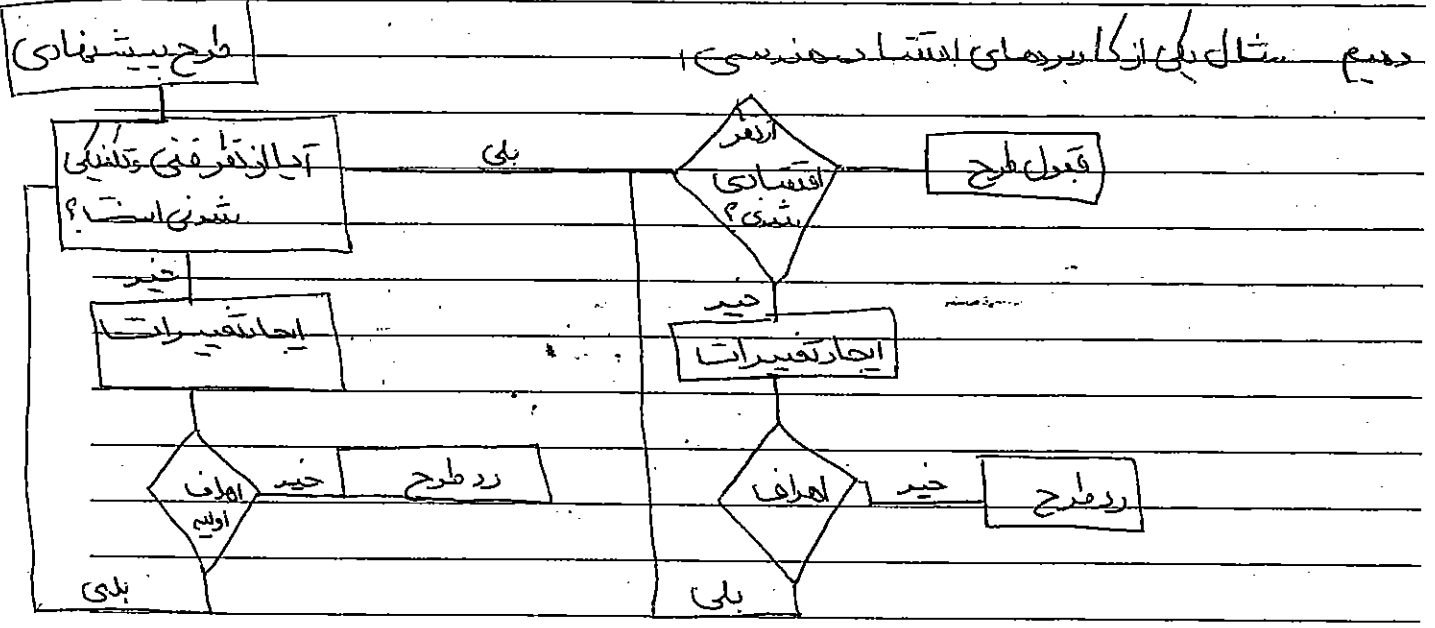 دهیم مثال یکی از کاربردهای اقتصاد مهندسی:
طرح پیشنهادی
آیا از نظر فنی و تکنیکی
شدنی است؟
بلی
از نظر
اقتصادی
شدی؟
قبول طرح
خیر
ایجاد تغییرات
خیر
ایجاد تغییرات
اهداف
اولیه
خیر
رد طرح
اهداف
خیر
رد طرح
بلی
بلی